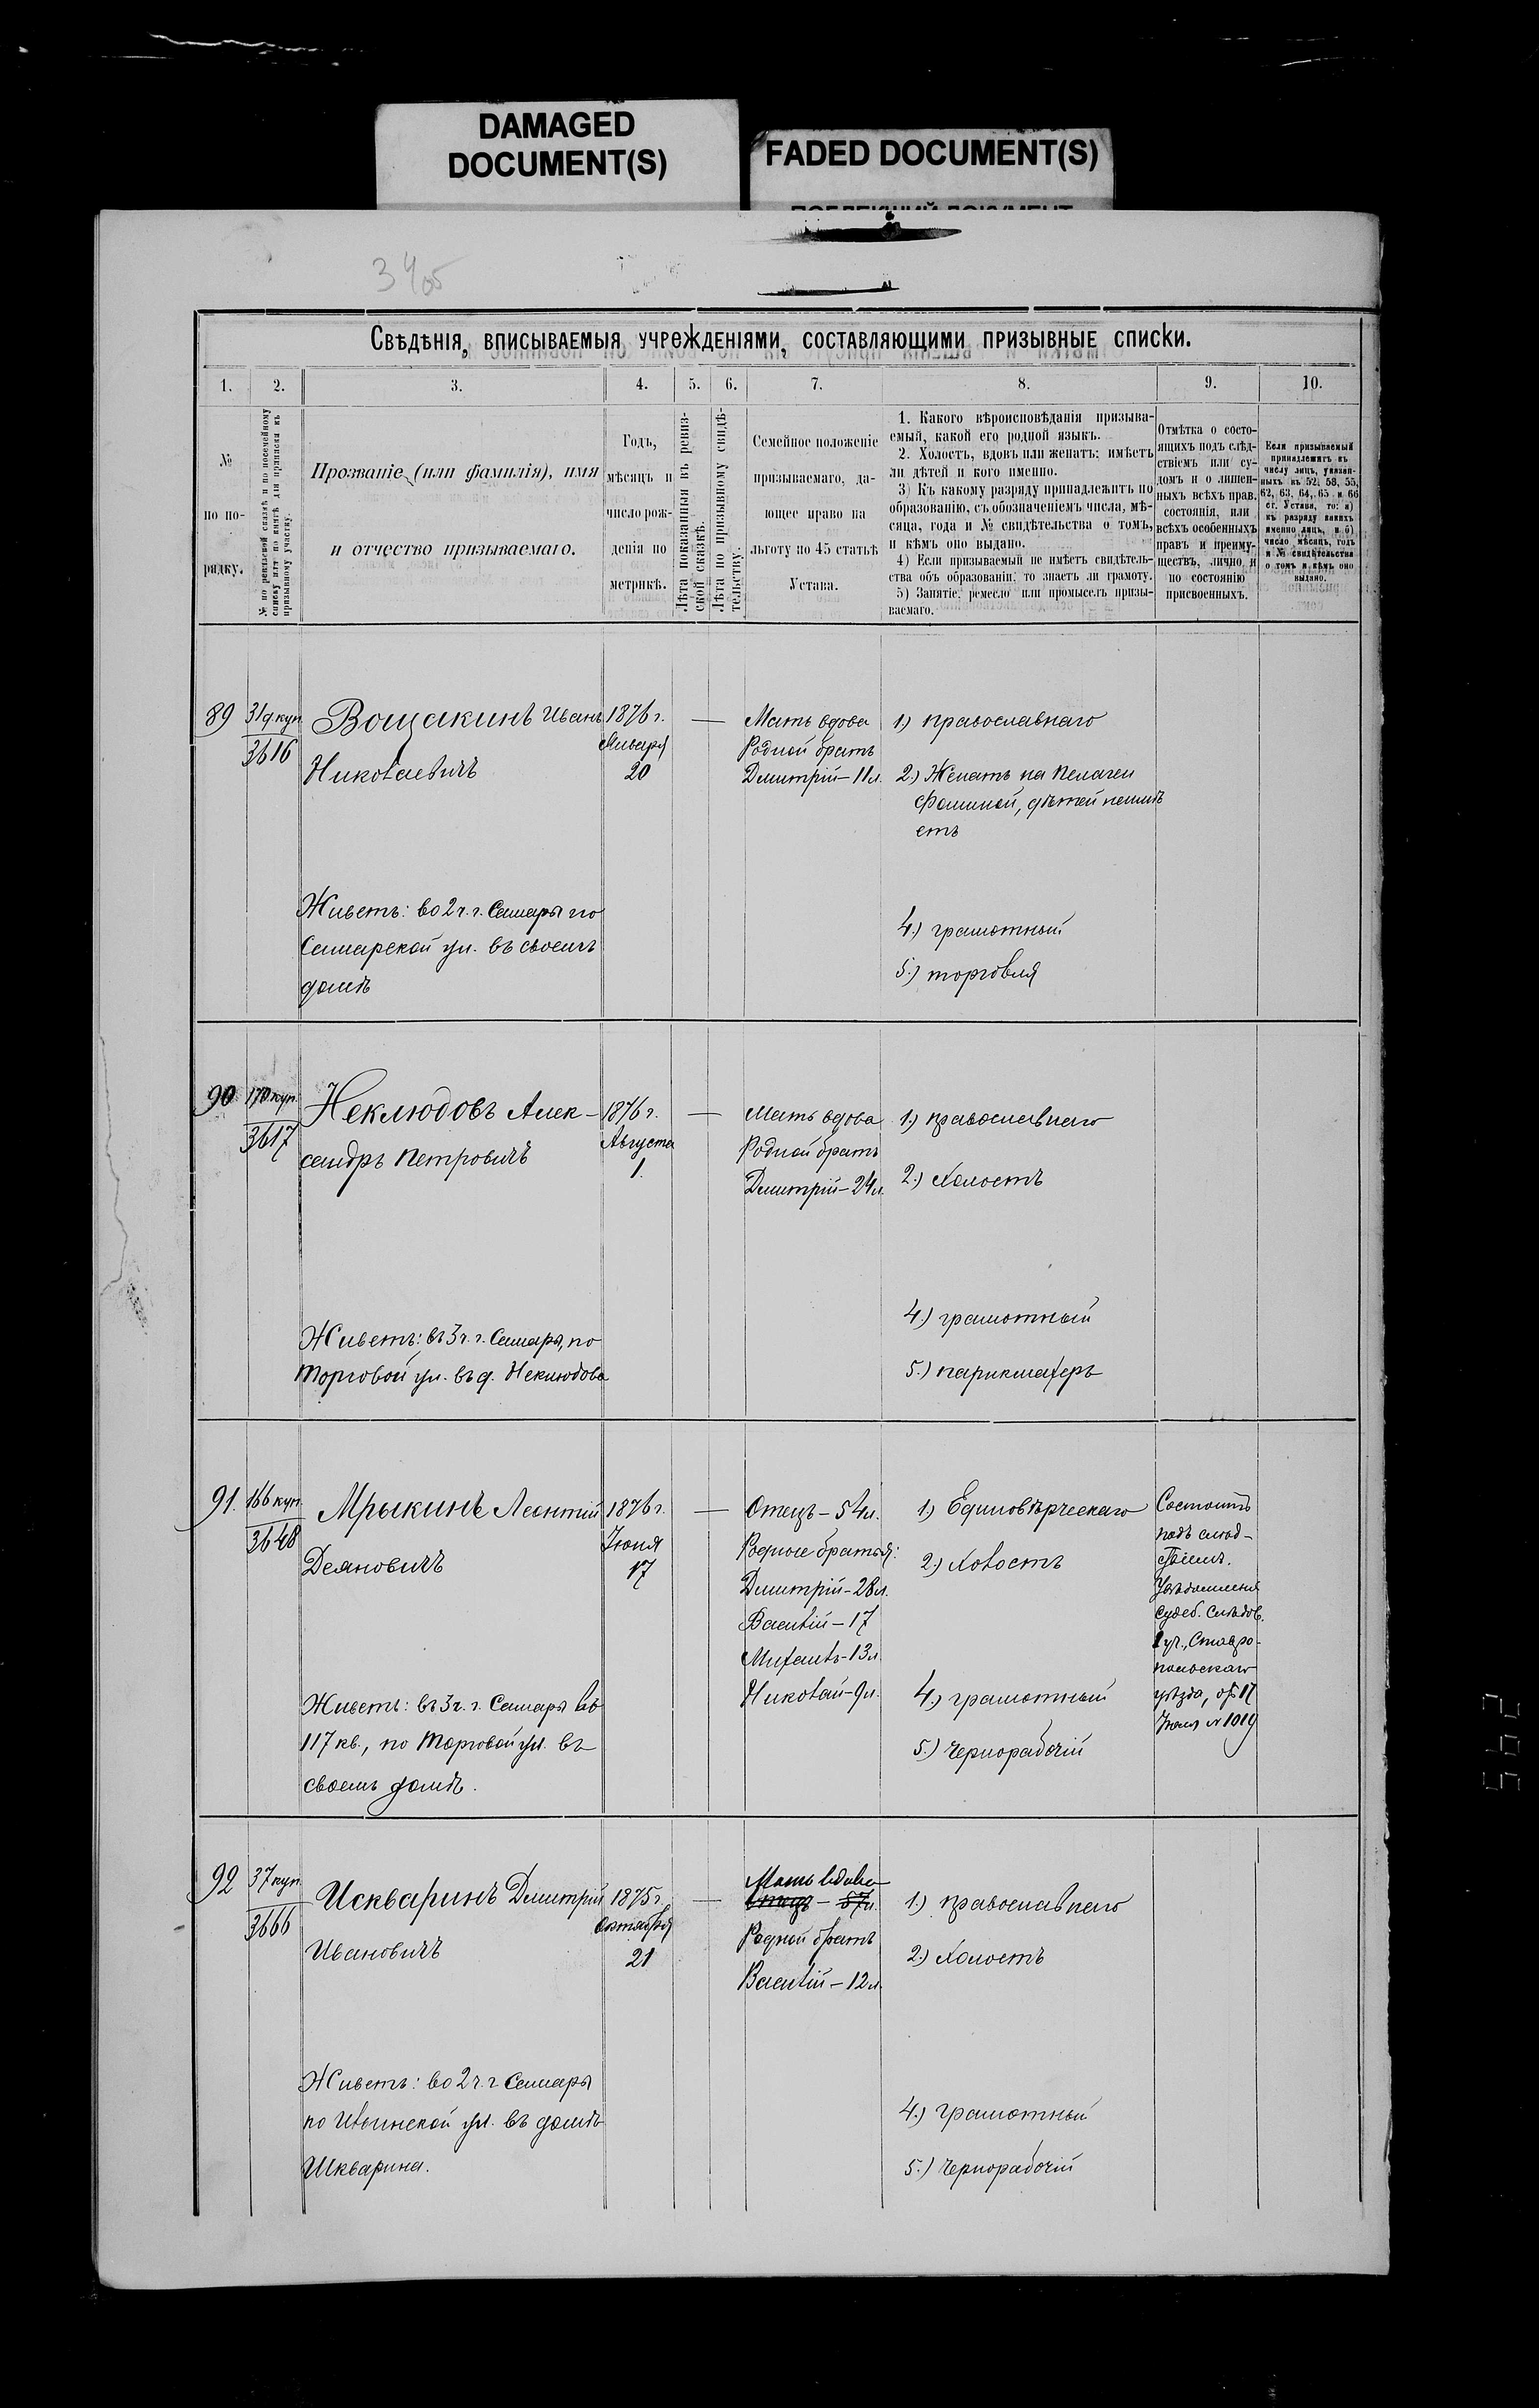 DAMAGED
DOCUMENT(S)
FADED DOCUMENT(S)
ПОБЛЕКШИЙ ДОКУМЕНТ
Свѣдѣнія, вписываемыя учрежденіями, составляющими призывные списки.
1. 2. 3. 4. 5. 6. 7. 8. 9. 10.
№
по по-
рядку.
№ по ревизской сказкѣ и по посемейному
списку или по книгѣ для приписки къ
призывному участку.
Прозваніе (или фамилія), имя
и отчество призываемаго.
Годъ,
мѣсяцъ и
число рож-
денія по
метрикѣ.
Лѣта показанныя въ ревиз-
ской сказкѣ.
Лѣта по призывному свидѣ-
тельству.
Семейное положеніе
призываемаго, да-
ющее право на
льготу по 45 статьѣ
Устава.
1. Какого вѣроисповѣданія призыва-
емый, какой его родной языкъ.
2. Холостъ, вдовъ или женатъ; имѣетъ
ли дѣтей и кого именно.
3) Къ какому разряду принадлежитъ по
образованію, съ обозначеніемъ числа, мѣ-
сяца, года и № свидѣтельства о томъ,
и кѣмъ оно выдано.
4) Если призываемый не имѣетъ свидѣтель-
ства объ образованіи: то знаетъ ли грамоту.
5) Занятіе, ремесло или промыселъ призы-
ваемаго.
Отмѣтка о состо-
ящихъ подъ слѣд-
ствіемъ или су-
домъ и о лишен-
ныхъ всѣхъ прав.
состоянія, или
всѣхъ особенныхъ
правъ и преиму-
ществъ, лично и
по состоянію
присвоенныхъ.
Если призываемый
принадлежитъ къ
числу лицъ, указан-
ныхъ въ 52, 53, 55,
62, 63, 64, 65 и 66
ст. Устава, то: а)
къ разряду какихъ
именно лицъ, и б)
число мѣсяцъ, годъ
и № свидѣтельства
о томъ и кѣмъ оно
выдано.
89
31д. куп
3616
Вощакинъ Иванъ
Николаевичъ
Живетъ: во 2 ч. г. Самары по
Самарской ул. въ своемъ
домѣ
1876 г.
Января
20
—
Мать вдова
Родной братъ
Димитрій — 11 л.
1) православнаго
2.) Женатъ на Пелагеи
Фоминой, дѣтей неимѣ
етъ
4.) грамотный
5.) торговля
90
170 куп.
3617
Неклюдовъ Алек-
сандръ Петровичъ
Живетъ: въ 3 ч. г. Самары, по
Торговой ул. въ д. Неклюдова
1876 г.
Августа
1.
—
Мать вдова
Родной братъ
Димитрій — 24 л.
1.) православнаго
2.) Холостъ
4.) грамотный
5.) парикмахеръ
91.
166 куп.
3648
Мрыкинъ Леонтій
Деяновичъ
Живетъ: въ 3 ч. г. Самары въ
117 кв., по Торговой ул. въ
своемъ домѣ.
1876 г.
Іюня
17
—
Отецъ — 54 л.
Родные братья:
Димитрій — 28 л.
Василій — 17
Михаилъ — 13 л
Николай — 9 л.
1) Единовѣрческаго
2.) Холостъ
4.) грамотный
5.) Чернорабочій
Состоитъ
подъ слѣд-
ствіемъ.
Увѣдомленіе
Судеб. Слѣдов.
уч., Ставро-
польскаго
уѣзда, отъ 17
№ 1019
92
37 куп.
3666
Искваринъ Димитрій
Ивановичъ
Живетъ: во 2 ч. г Самары
по Ильинской ул. въ домѣ
Шкварина.
1875 г.
Октября
21
—
Мать вдова
Отецъ — 57 л.
Родной братъ
Василій — 12 л.
1.) православнаго
2.) Холостъ
4.) грамотный
5.) Чернорабочій